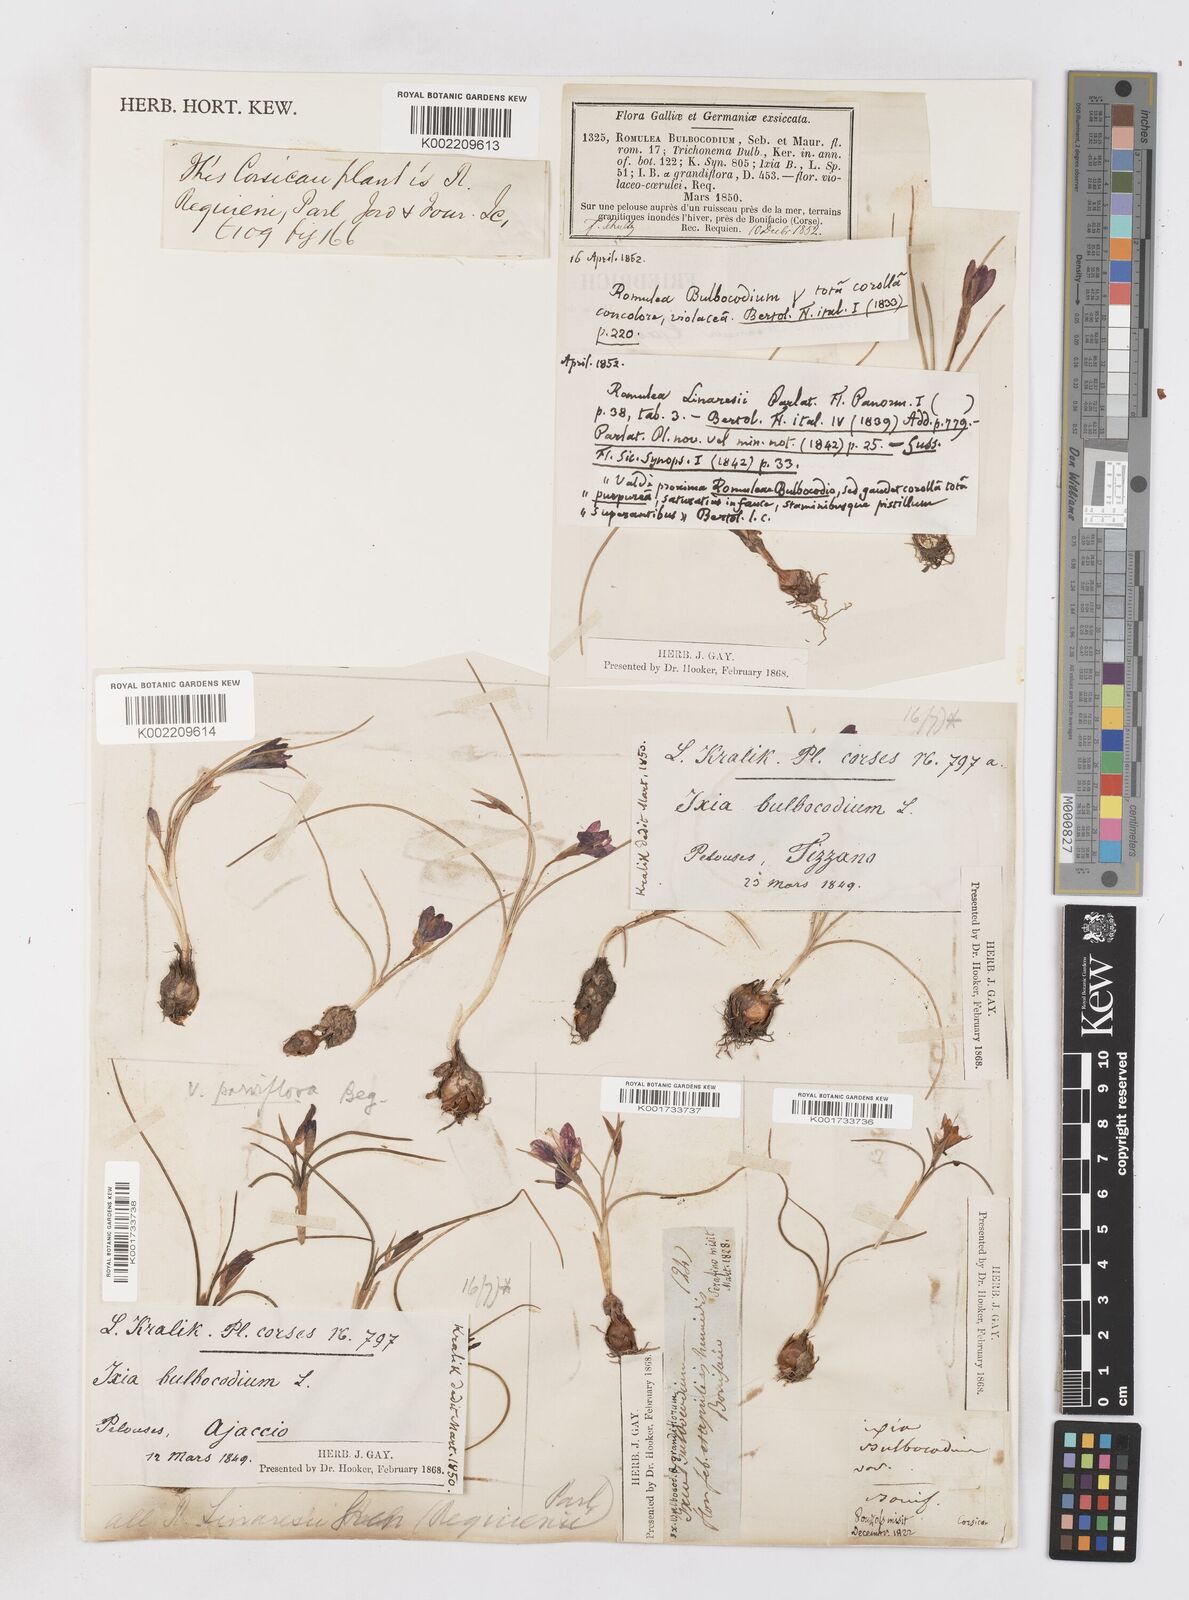 HERB. HORT. KEW.
ROYAL BOTANIC GARDENS KEW
K002209613
This Corsican plant is R.
Requieni, Parl, Jord & Four. Ic,
t 109 f 166
Flora Galliæ et Germaniæ exsiccata.
1325, ROMULEA BULBOCODIUM, Seb. et Maur. fl.
rom. 17; Trichonema Bulb., Ker. in ann.
of. bot. 122; K. Syn. 805; Ixia B., L. Sp.
51; I. B. α grandiflora, D. 453.—flor. vio-
laceo-cœrulei. Req.
Mars 1850.
Sur une pelouse auprès d'un ruisseau près de la mer, terrains
granitiques inondés l'hiver, près de Bonifacio (Corse).
Rec. Requien. 10 Decbr 1852.
16 April. 1852.
Romulea Bulbocodium γ totâ corollâ
concolore, violaceâ. Bertol. Fl. ital. I (1833)
p. 220.
April. 1852.
Romulea Linaresii Parlat. Fl. Panorm. I ( )
p. 38, tab. 3. — Bertol. Fl. ital. IV (1839) Add. p. 779.—
Parlat. Pl. nov. vel min. not. (1842) p. 25. — Guss.
Fl. Sic. Synops. I (1842) p. 33.
" Valdè proxima Romuleae Bulbocodio, sed gaudet corollâ totâ
" purpureâ, saturatius in fauce, staminibusque pistillum
" superantibus " Bertol. l. c.
HERB. J. GAY.
Presented by Dr. Hooker, February 1868.
ROYAL BOTANIC GARDENS KEW
K002209614
16/7)*
L. Kralik. Pl. corses N. 797 a.
Ixia bulbocodium L.
Pelouses, Tizzano
23 Mars 1849.
Kralik dedit Mart. 1850.
HERB. J. GAY.
Presented by Dr. Hooker, February 1868.
v. parviflora Beg.
ROYAL BOTANIC GARDENS KEW
K001733738
16/7)*
L. Kralik. Pl. corses N. 797
Ixia bulbocodium L.
Pelouses, Ajaccio
12 Mars 1849.
HERB. J. GAY.
Presented by Dr. Hooker, February 1868.
Kralik dedit Mart. 1850.
all R. Linaresii (Requienii
Parl)
ROYAL BOTANIC GARDENS KEW
K001733737
HERB. J. GAY.
Presented by Dr. Hooker, February 1868.
Ixia bulbocodium (24)
Bonifacio
Serafino misit
Mart. 1828.
ROYAL BOTANIC GARDENS KEW
K001733736
HERB. J. GAY.
Presented by Dr. Hooker, February 1868.
ixia
Bulbocodium
var.
Bonif.
Pouzols misit
Decemr. 1822
Corsica
Don Williams
M000827
Density
inches
centimeters
Kew
Royal Botanic Gardens
copyright reserved
0 1 2 3 4 5 6 7 8 9 10
cm